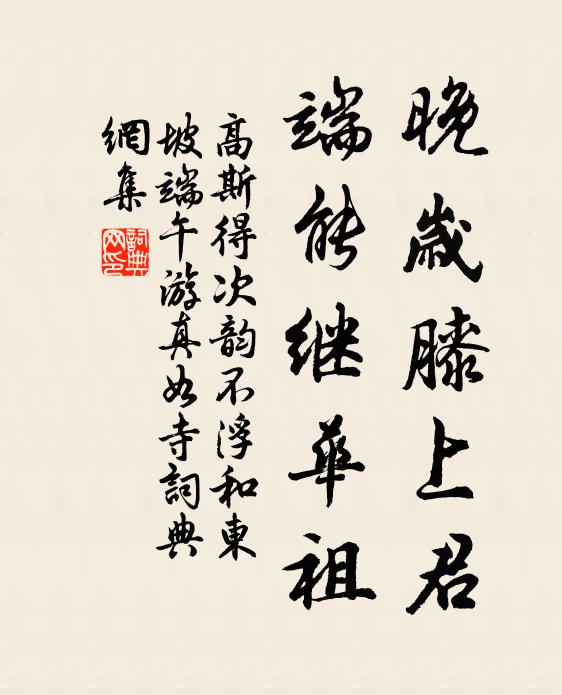 晚歲膝上君
端能继華祖
高斯得次韵不浮和東
坡端午游真如寺詞典
網集
詞典
网印